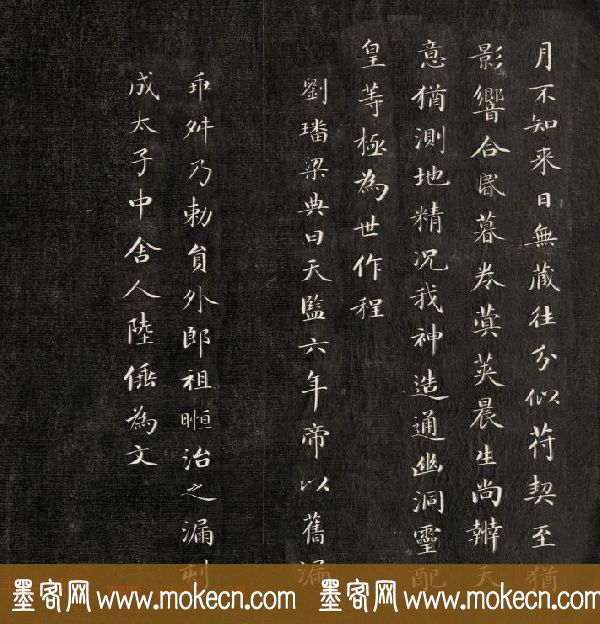 月不知來日無蔵往分似苻契至猶
影響合昬暮卷蓂莢晨生尚辨天
意猶測地精况我神造通幽洞靈配
皇等極為世作程
劉璠梁典曰天監六年帝以舊漏
乖舛乃勅員外郎祖暅治之漏刻
成太子中舍人陸倕為文
墨客网 www.mokecn.com 墨客网 www.mokecn.com